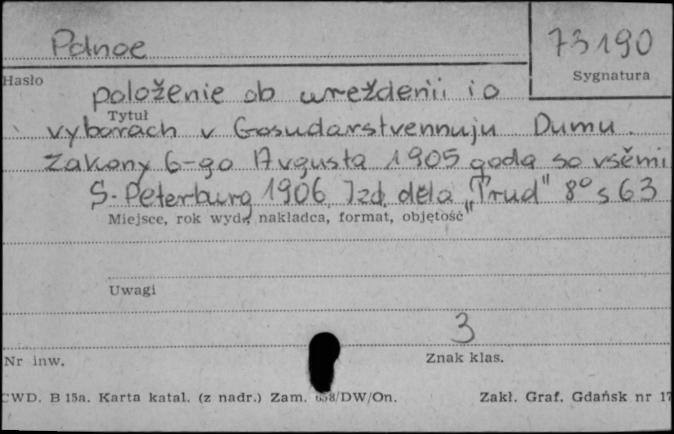 Polnoe
73190
Hasło
Sygnatura
položenie ob učreždenii i o
Tytuł
vyborach v Gosudarstvennuju Dumu.
Zakony 6-go Avgusta 1905 goda so vsěmi
S-Peterburg 1906, Izd. dělo „Trud" 8° s 63
Miejsce, rok wyd., nakładca, format, objętość
Uwagi
3
Nr inw.
Znak klas.
CWD. B 15a. Karta katal. (z nadr.) Zam. 658/DW/On.
Zakł. Graf. Gdańsk nr 17